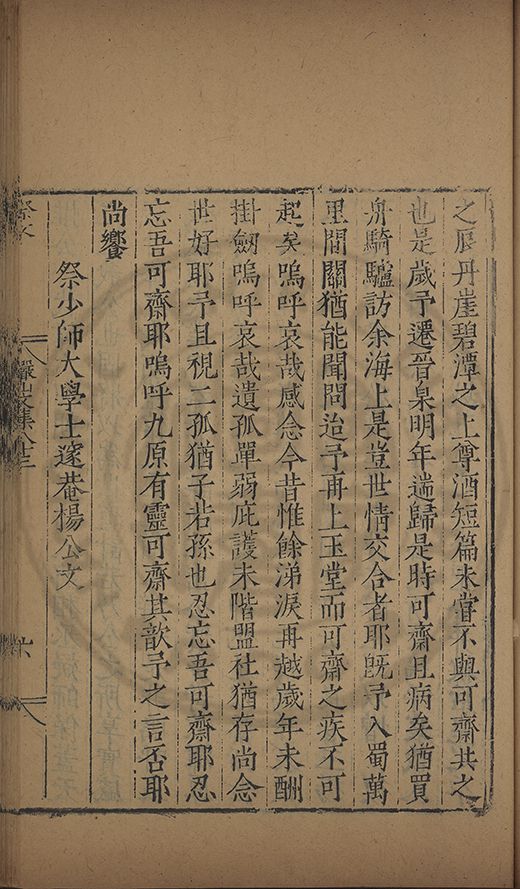 之辰丹崖碧潭之上尊酒短篇未嘗不與可齋共之
也是歲予遷晉臬明年遄歸是時可齋且病矣猶買
舟騎驢訪余海上是豈世情交合者耶旣予入蜀萬
里間關猶能聞問迨予再上玉堂而可齋之疾不可
起矣嗚呼哀哉感念今昔惟餘涕淚再越歲年未酬
掛劔嗚呼哀哉遺孤單弱庇護未階盟社猶存尚念
世好耶予且視二孤猶子若孫也忍忘吾可齋耶忍
忘吾可齋耶嗚呼九原有靈可齋其歆予之言否耶
尚饗
祭少師大學士邃菴楊公文
儼山文集八十三